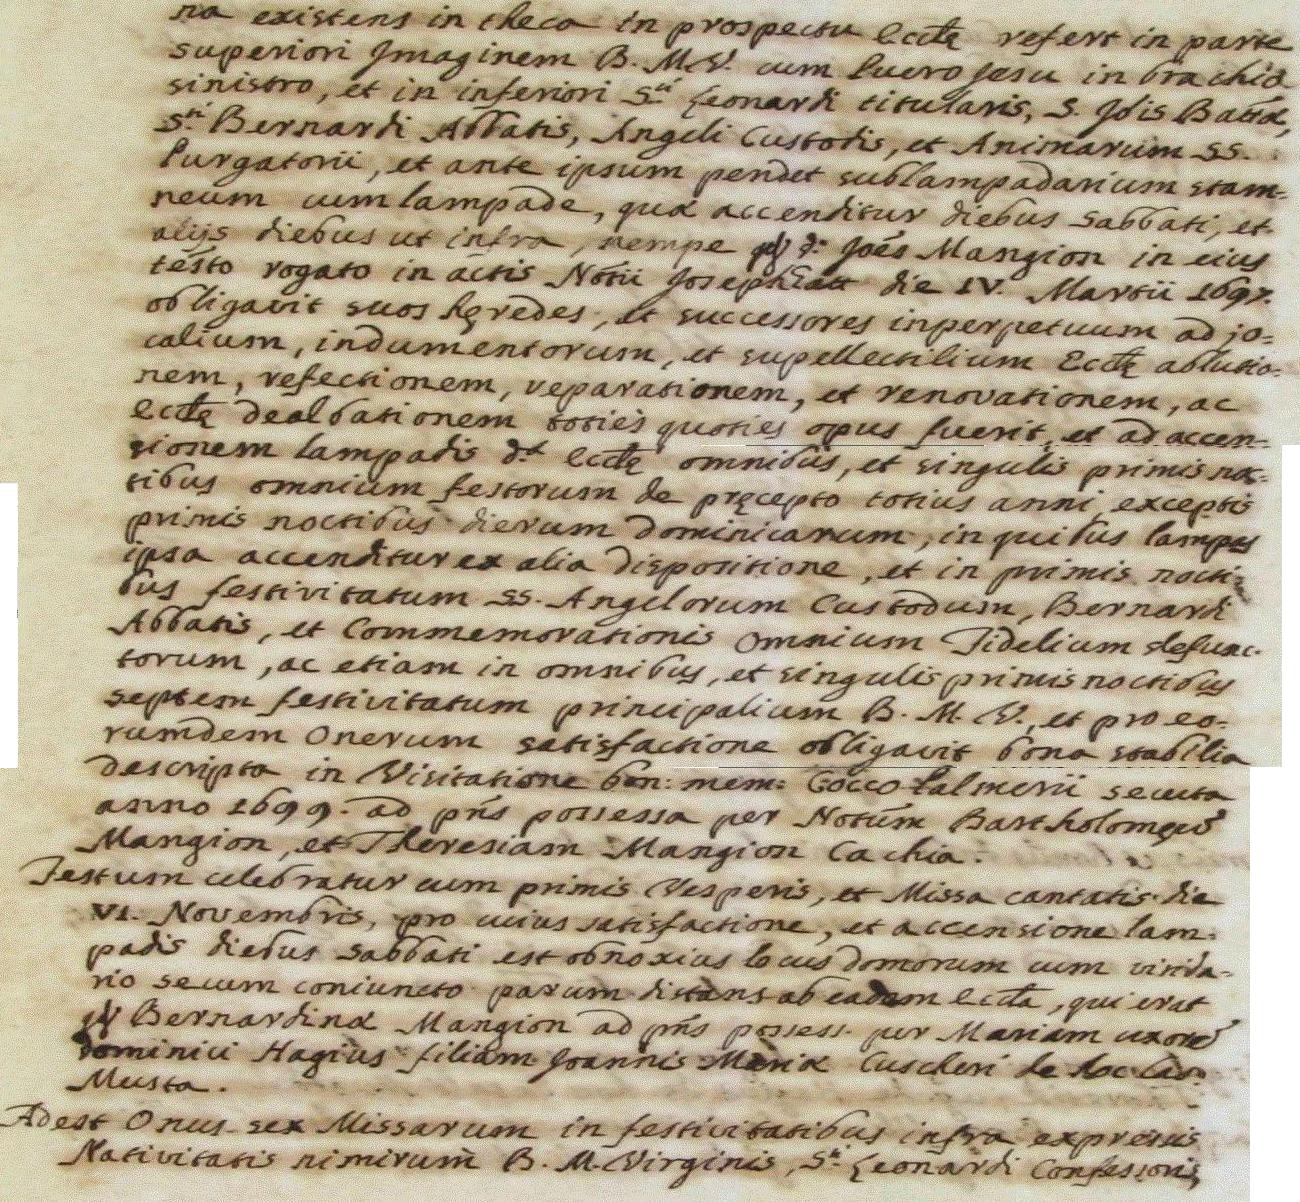 na existens in theca in prospectu Ecclę refert in parte
superiori Imaginem B. M. V. cum puero Jesu in brachio
sinistro, et in inferiori Sti Leonardi titularis, S. Jois Battæ,
Sti Bernardi Abbatis, Angeli Custodis, et Animarum SS.
Purgatorii, et ante ipsum pendet sublampadarium stam-
neum cum lampade, quæ accenditur diebus Sabbati, et
alijs diebus ut infra, nempe qd d: Joes Mangion in eius
testo rogato in actis Notii Joseph die IV. Martii 1697.
obligavit suos hęredes, et successores inperpetuum ad jo-
calium, indumentorum, et supellectilium Ecclę ablutio-
nem, refectionem, reparationem, et renovationem, ac
Ecclę dealbationem toties quoties opus fuerit, et ad accen-
sionem lampadis dæ Ecclę omnibus, et singulis primis noc-
tibus omnium festorum de pręcepto totius anni, exceptis
primis noctibus dierum Dominicarum, in quibus lampas
ipsa accenditur ex alia dispositione, et in primis nocti-
bus festivitatum SS. Angelorum Custodum, Bernardi
Abbatis, et Commemorationis Omnium Fidelium defunc-
torum, ac etiam in omnibus, et singulis primis noctibus
septem festivitatum principalium B. M. V., et pro eo-
rumdem Onerum satisfactione obligavit bona stabilia
descripta in Visitatione bon: mem: Cocco Palmerii secuta
anno 1699. ad pns possessa per Notum Bartholomęum
Mangion, et Theresiam Mangion Cachia.
Festum celebratur cum primis Vesperis, et Missa cantatis die
VI. Novembris, pro cuius satisfactione, et accensione lam-
padis diebus Sabbati est obnoxius locus domorum cum virida-
rio secum coniuncto parum distans ab eadem Eccla, qui erat
qd Bernardinæ Mangion ad pns possess. per Mariam uxorem
Dominici Hagius filiam Joannis Mariæ Cuscheri de hoc Cas:
Musta.
Adest Onus sex Missarum in festivitatibus infra expressis
Nativitatis nimirum B. M. Virginis, Sti Leonardi Confessoris,